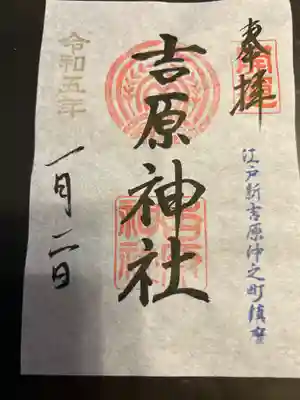 奉拝
江戸新吉原仲之町鎮座
吉原神社
令和五年
一月二日